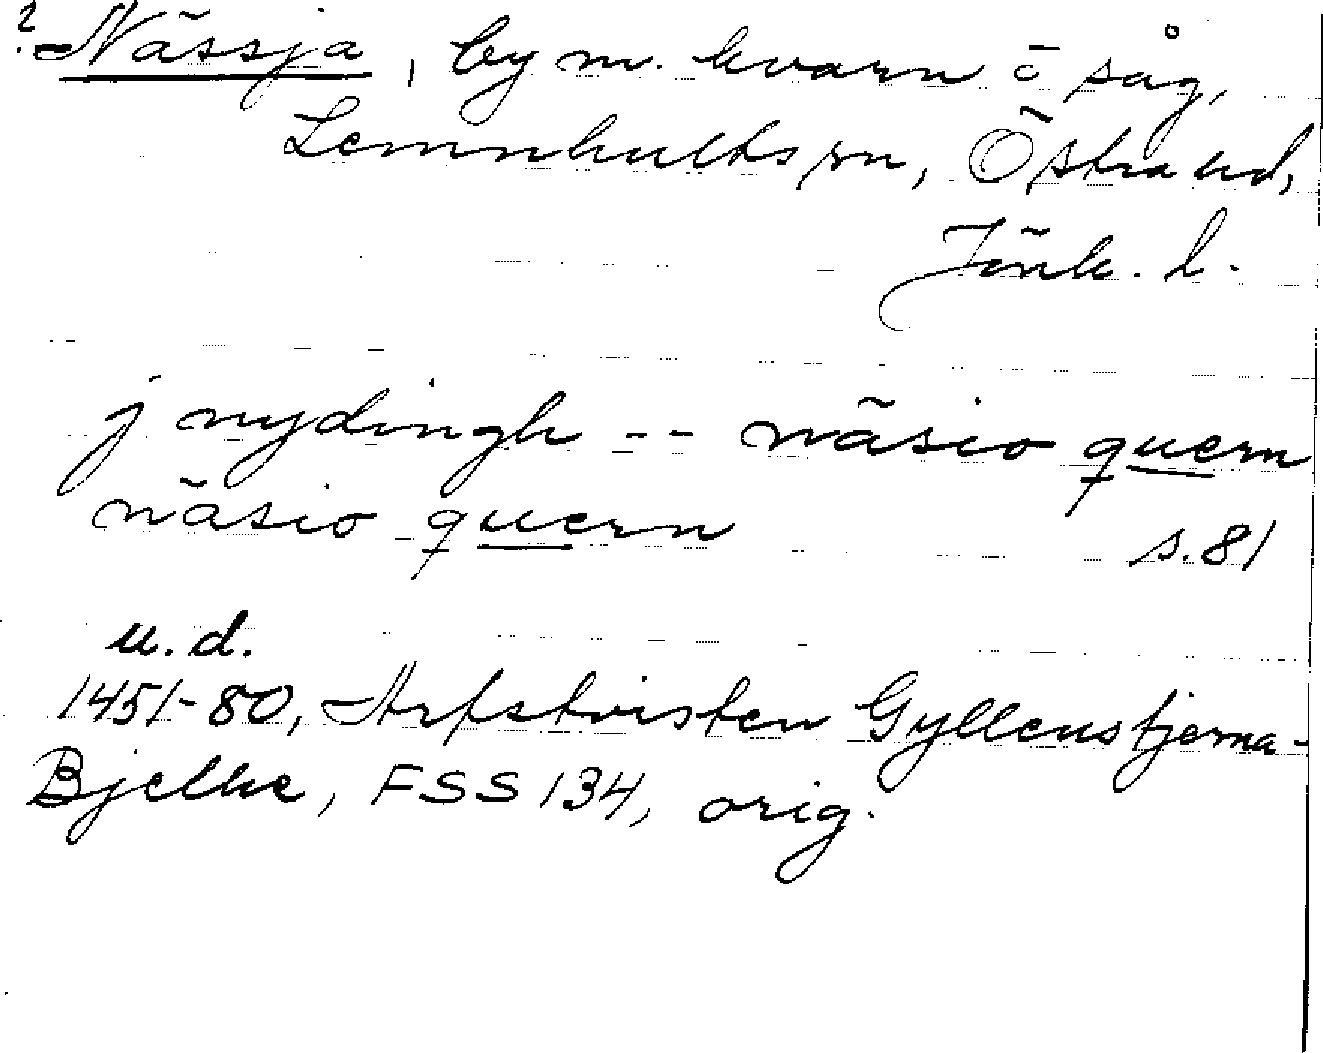 ? Nässja, by m. kvarn o såg,
Lemnhults sn, Östra hd,
Jönk. l.
j nydingh -- näsio quern
näsio quern s. 81
u. d.
1451-80, Arfstvisten Gyllenstjerna-
Bjelke, FSS 134, orig.